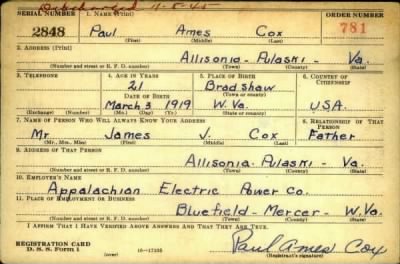 Discharged 11-5-45
SERIAL NUMBER 1. NAME (Print) ORDER NUMBER
2848 Paul Ames Cox 781
(First) (Middle) (Last)
2. ADDRESS (Print)
Allisonia - Pulaski - Va.
(Number and street or R. F. D. number) (Town) (County) (State)
3. TELEPHONE 4. AGE IN YEARS 5. PLACE OF BIRTH 6. COUNTRY OF CITIZENSHIP
21 Bradshaw
DATE OF BIRTH (Town or county)
March 3 1919 W. Va. USA.
(Exchange) (Number) (Mo.) (Day) (Yr.) (State or country)
7. NAME OF PERSON WHO WILL ALWAYS KNOW YOUR ADDRESS 8. RELATIONSHIP OF THAT PERSON
Mr James V. Cox Father
(Mr., Mrs., Miss) (First) (Middle) (Last)
9. ADDRESS OF THAT PERSON
Allisonia - Pulaski - Va.
(Number and street or R. F. D. number) (Town) (County) (State)
10. EMPLOYER'S NAME
Appalachian Electric Power Co.
11. PLACE OF EMPLOYMENT OR BUSINESS
Bluefield - Mercer - W. Va.
(Number and street or R. F. D. number) (Town) (County) (State)
I AFFIRM THAT I HAVE VERIFIED ABOVE ANSWERS AND THAT THEY ARE TRUE.
REGISTRATION CARD
D. S. S. Form 1 (over) 16-17105 Paul Ames Cox
(Registrant's signature)